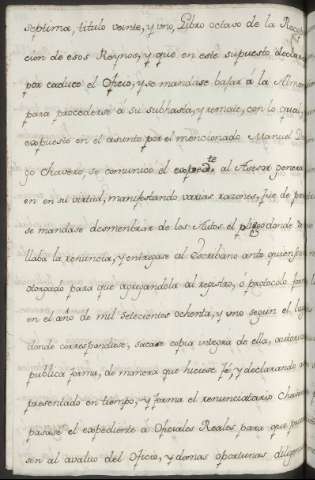 septima, titulo veinte, y uno, Libro octavo de la Recopila
cion de esos Reynos, y que en este supuesto declara
por caduco el Oficio, y se mandase bajar à la Almon
para procederse à su subhasta, y remate, con lo qual,
expuesto en el asunto por el mencionado Manuel Di
go Chavero, se comunicó el expedte. al Asesor genera
en en su virtud, manifestando varias razones, fue de
se mandase desmembrar de los Autos el pliego donde se
llaba la renuncia, y entregase al Escribano ante quien
otorgado para que agregandola al registro, ó protocolo
en el año de mil setecientos ochenta, y uno segun el lugar
donde correspondiese, sacase copia integra de ella, autoriza
publica forma, de manera que hiciese fé, y declarando
presentado en tiempo, y forma el renunciatario Chavero
pasase el expediente à Oficiales Reales para que
sen al avaluo del Oficio, y demas oportunas diligen